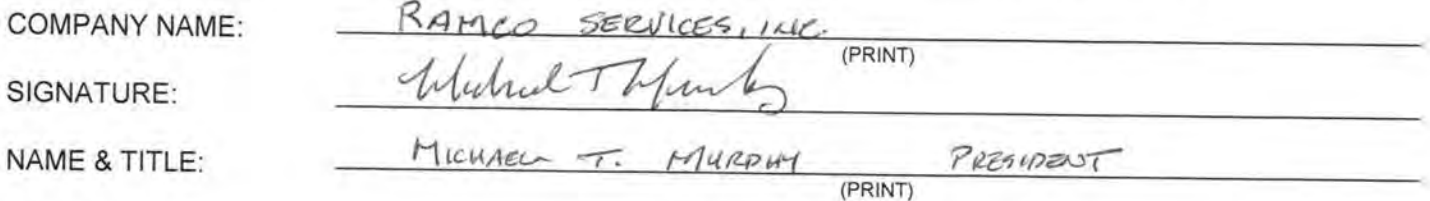 COMPANY NAME: RAMCO SERVICES, INC.
(PRINT)
SIGNATURE: Michael T Murphy
NAME & TITLE: MICHAEL T. MURPHY PRESIDENT
(PRINT)